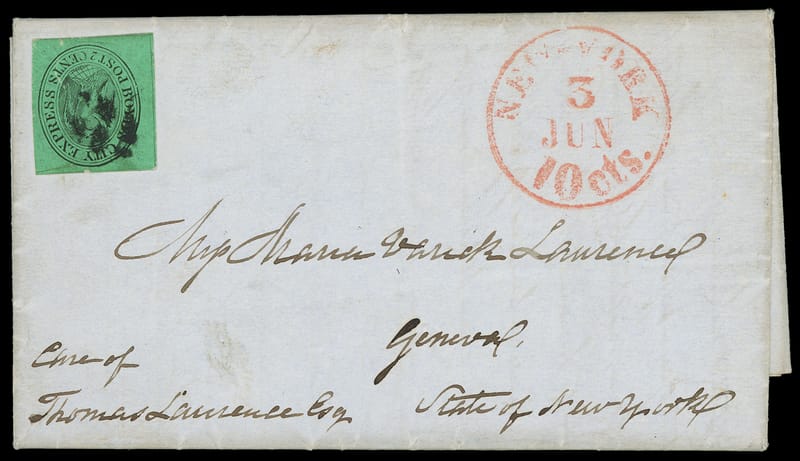 BOYD'S CITY EXPRESS POST 2 CENTS
NEW-YORK
3
JUN
10 cts.
Miss Maria Varick Lawrence
Geneva,
Care of
Thomas Lawrence Esq
State of New York